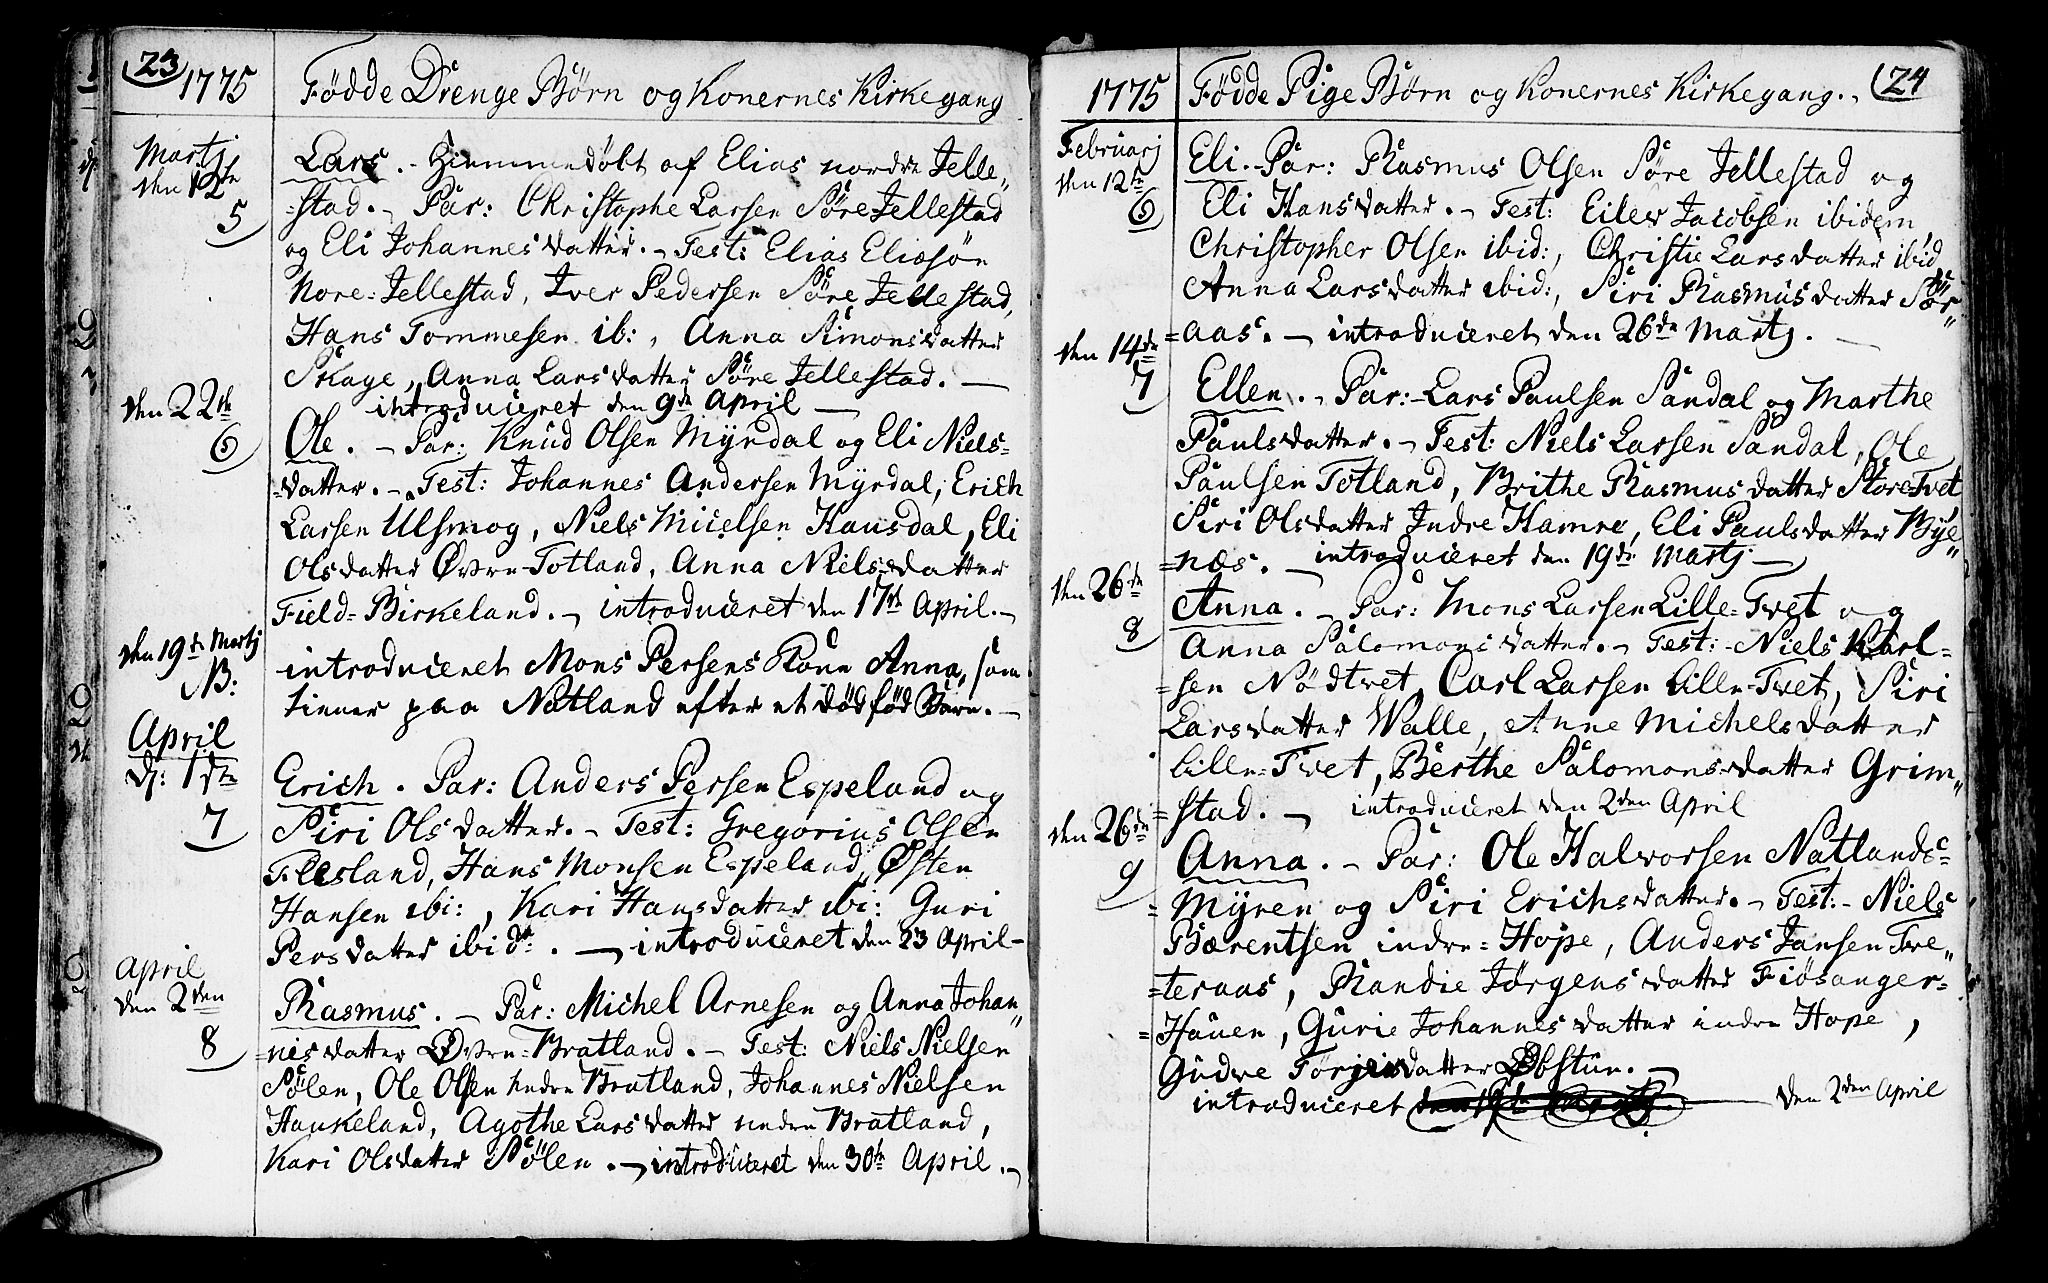 23
1775
Födde Drenge Börn og Konernes Kirkegang
Martj
den 12te
5
Lars. - Hiemmedöbt af Elias nordre Jelle„
=stad. - Par: Christophe Larsen Söre Jellestad
og Eli Johannesdatter. - Test: Elias Eliasön
Nore=Jellestad, Iver Pedersen Söre Jellestad,
Hans Tommesen ib:, Anna Simonsdatter
Skage, Anna Larsdatter Söre Jellestad. -
introduceret den 9de April -
den 22de
6
Ole. - Par: Knud Olsen Myrdal og Eli Niels=
=datter. - Test: Johannes Andersen Myrdal, Erich
Larsen Ulsmog, Niels Micelsen Hausdal, Eli
Olsdatter Øvre-Totland, Anna Nielsdatter
Field=Birkeland. - introduceret den 17de April. -
den 19de Martj
NB:
introduceret Mons Persens Kone Anna, som
tiener paa Natland efter et dödföd Barn. -
April
d: 1ste
7
Erich. Par: Anders Persen Espeland og
Siri Olsdatter. - Test: Gregorius Olsen
Flesland, Hans Monsen Espeland, Østen
Hansen ibi:, Kari Hansdatter ibi: Guri
Persdatter ibid. - introduceret den 23 April -
April
den 2den
8
Rasmus. - Par: Michel Arnesen og Anna Johan„
=nisdatter Øvre=Bratland. - Test: Niels Nielsen
Sölen, Ole Olsen nedre Bratland, Johannes Nielsen
Haukeland, Agothe Larsdatter nedre Bratland,
Kari Olsdatter Sölen. - introduceret den 30te April. -
1775
Födde Pige Börn og Konernes Kirkegang. -
24
Februarj
den 12te
6
Eli. - Par: Rasmus Olsen Söre Jellestad og
Eli Hansdatter. - Test: Eilev Jacobsen ibidem,
Christopher Olsen ibid:, Christie Larsdatter ibid,
Anna Larsdatter ibid:, Siri Rasmusdatter Sör„
=aas. - introduceret den 26de Martj. -
den 14de
7
Ellen. - Par: - Lars Paulsen Sandal og Marthe
Paulsdatter. - Test: Niels Larsen Sandal, Ole
Paulsen Totland, Brithe Rasmusdatter Store Tvet
Siri Olsdatter Indre Hamre, Eli Paulsdatter Bye„
=næs. - introduceret den 19de Martj -
den 26de
8
Anna. - Par: Mons Larsen Lille=Tvet og
Anna Salomonsdatter. - Test: - Niels Karl=
=sen Nödtvet, Carl Larsen Lille=Tvet, Siri
Larsdatter Walle, Anne Michelsdatter
Lille=Tvet, Berthe Salomonsdatter Grim„
=stad. - introduceret den 2den April
den 26de
9
Anna. - Par: Ole Halvorsen Natlands=
=Myren og Siri Erichsdatter. - Test: - Niels
Bærentsen indre=Hope, Anders Jansen Tve„
=teraas, Randie Jörgensdatter Fiösanger=
=Hauen, Gurie Johannesdatter indre Hope,
Gudve Torjeisdatter Øbstun. -
introduceret den 2den April